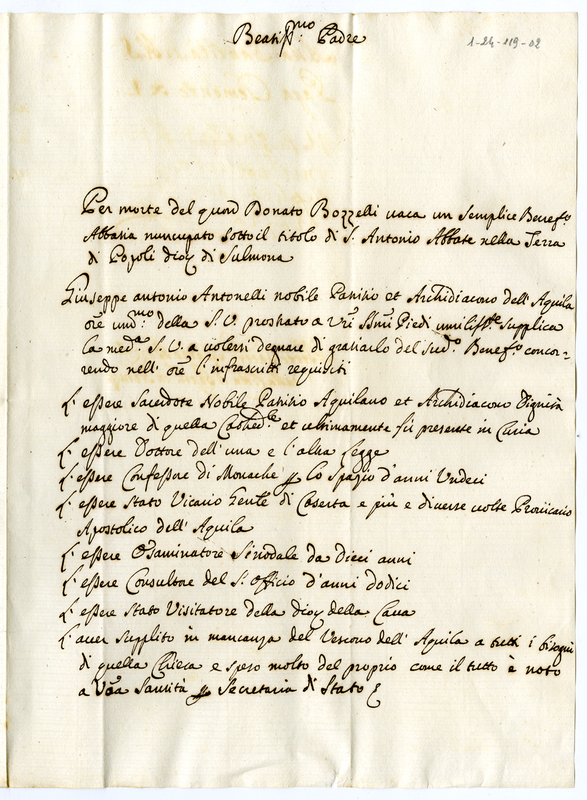 Beatiss:mo Padre
1-24-119-02
Per morte del quond Donato Bozzelli vaca un semplice Benef.o
Abbazia nuncupato sotto il titolo di S. Antonio Abbate nella Terra
di Popoli dioc di Sulmona
Giuseppe antonio Antonelli nobile Patritio et Archidiacono dell'Aquila
ore um:mo della S. V. prostrato a V̄ri S̄smi Piedi umilis:te supplica
la med.a S. V. a volersi degnare di gratiarlo del sud.o Benef.o concor=
rendo nell' ore l'infrascritti requisiti
L'essere Sacerdote Nobile Patritio Aquilano et Archidiacono Dignità
maggiore di quella Cathed.le et ultimamente fù presente in Curia
L'essere Dottore dell'una e l'altra Legge
L'essere Confessore di Monache p lo spazio d'anni Undeci
L'essere Stato Vicario Gen̄le di Caserta e più e diverse volte Provicario
Apostolico dell'Aquila
L'essere Esaminatore Sinodale da Dieci anni
L'essere Consultore del S. Officio d'anni dodici
L'essere Stato Visitatore della dioc della Cava
L'aver supplito in mancanza del Vescovo dell'Aquila a tutti i bisogni
di quella Chiesa e speso molto del proprio come il tutto è noto
a V̄ra Santità p Secretaria di Stato